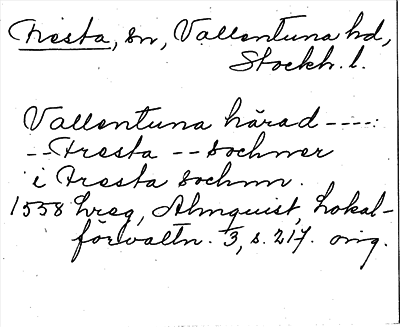 Fresta, sn, Vallentuna hd,
Stockh. l.
Vallentuna härad ----:
-- Fresta -- sochner
i Fresta sochnn.
1558 hreg, Almquist, Lokal-
förvaltn. 3, s. 217. orig.